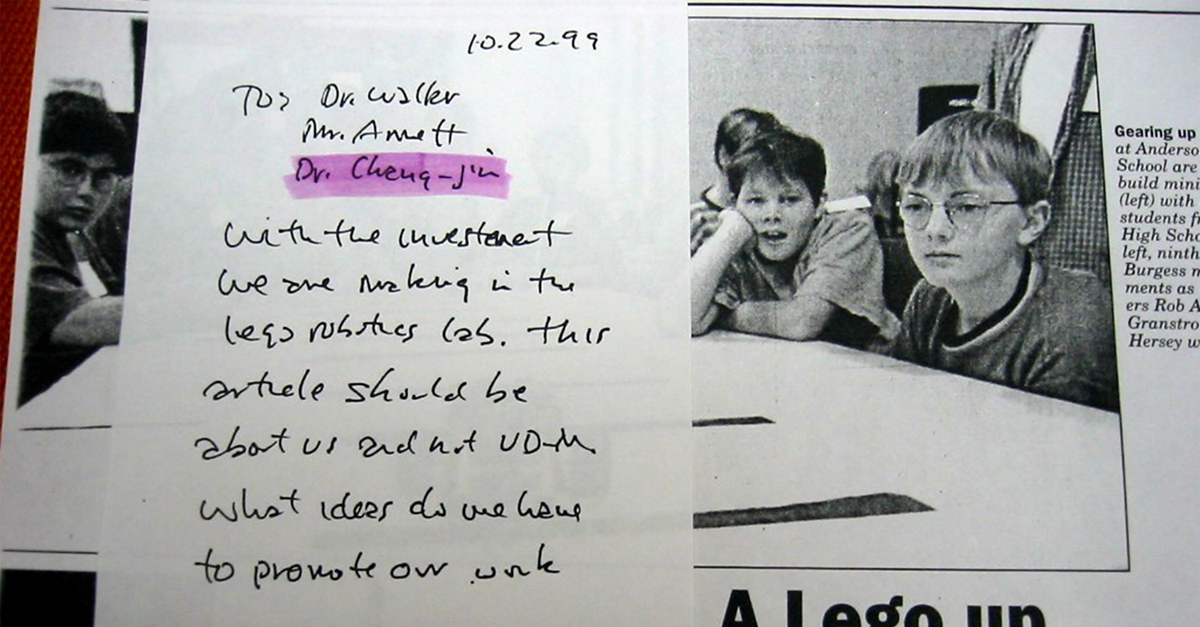 10.22.99
To: Dr. Walker
Mr. Arnett
Dr. Cheng-jin
with the investment
we are making in the
lego robotics lab. this
article should be
about us and not UD-M.
what ideas do we have
to promote our work
Gearing up
at Anderso
School are
build mini
(left) with
students f
High Scho
left, ninth
Burgess m
ments as
ers Rob A
Granstro
Hersey w
A Lego up